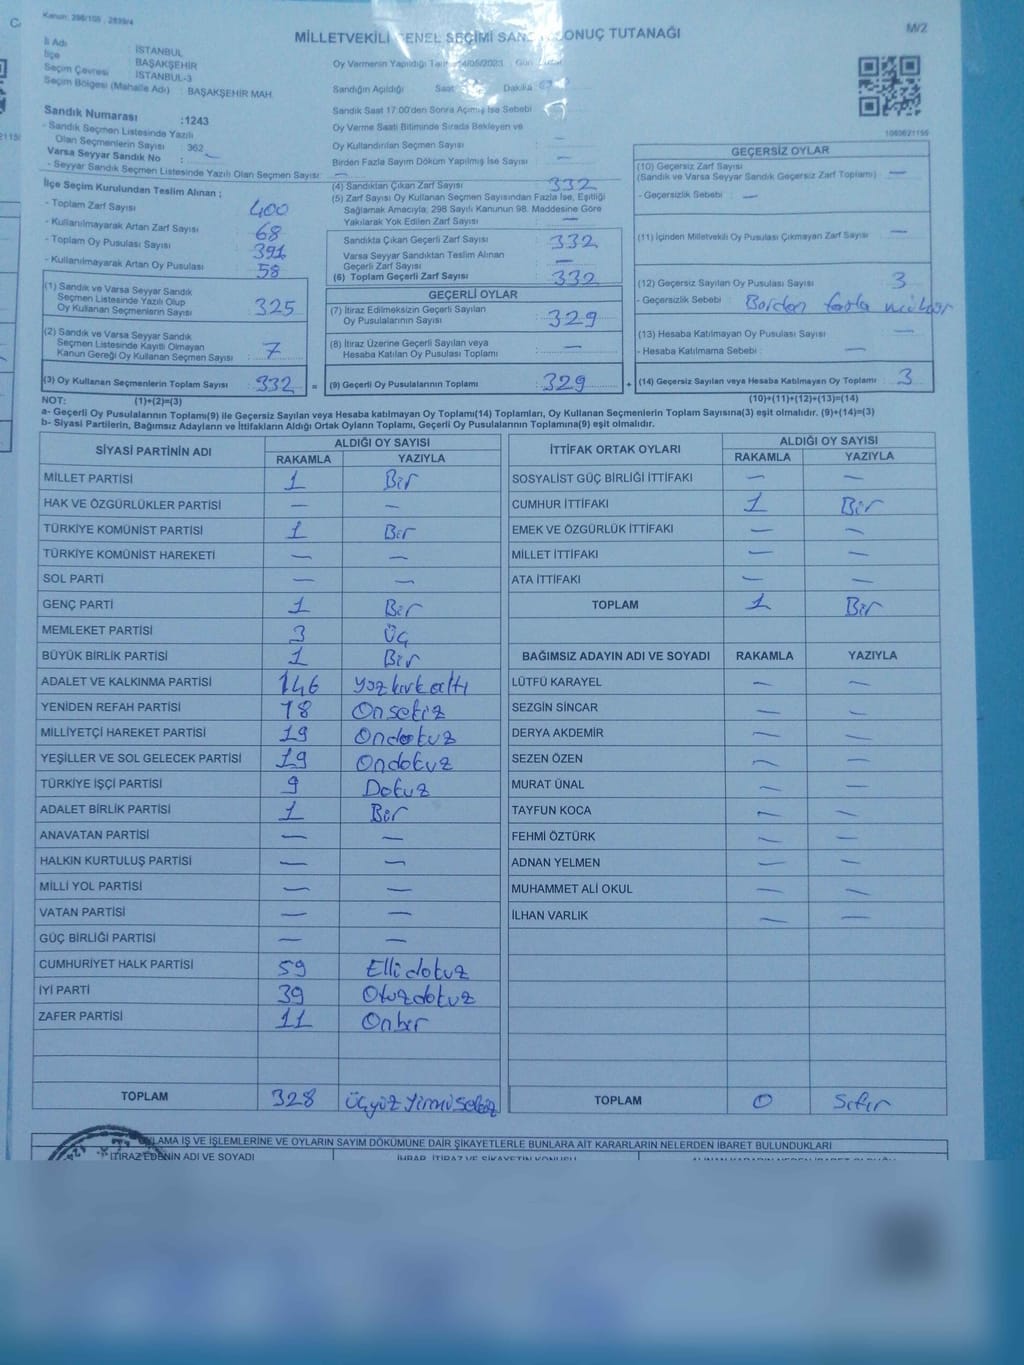 Kanun: 298/105 , 2839/4
MİLLETVEKİLİ GENEL SEÇİMİ SONUÇ TUTANAĞI
M/Z
İli Adı : İSTANBUL
İlçe : BAŞAKŞEHİR
Seçim Çevresi : İSTANBUL-3
Seçim Bölgesi (Mahalle Adı) : BAŞAKŞEHİR MAH.
Sandık Numarası :1243
- Sandık Seçmen Listesinde Yazılı
Olan Seçmenlerin Sayısı : 362
Varsa Seyyar Sandık No : —
- Seyyar Sandık Seçmen Listesinde Yazılı Olan Seçmen Sayısı: —
Oy Vermenin Yapıldığı
Sandığın Açıldığı : Saat Dakika
Sandık Saat 17:00'den Sonra Açılmış İse Sebebi : —
Oy Verme Saati Bitiminde Sırada Bekleyen ve
Oy Kullandırılan Seçmen Sayısı : —
Birden Fazla Sayım Döküm Yapılmış İse Sayısı : —
1080621155
İlçe Seçim Kurulundan Teslim Alınan ;
- Toplam Zarf Sayısı : 400
- Kullanılmayarak Artan Zarf Sayısı : 68
- Toplam Oy Pusulası Sayısı : 391
- Kullanılmayarak Artan Oy Pusulası : 58
(1) Sandık ve Varsa Seyyar Sandık
Seçmen Listesinde Yazılı Olup
Oy Kullanan Seçmenlerin Sayısı : 325
(2) Sandık ve Varsa Seyyar Sandık
Seçmen Listesinde Kayıtlı Olmayan
Kanun Gereği Oy Kullanan Seçmen Sayısı : 7
(3) Oy Kullanan Seçmenlerin Toplam Sayısı : 332 =
(4) Sandıktan Çıkan Zarf Sayısı : 332
(5) Zarf Sayısı Oy Kullanan Seçmen Sayısından Fazla İse, Eşitliği
Sağlamak Amacıyla, 298 Sayılı Kanunun 98. Maddesine Göre
Yakılarak Yok Edilen Zarf Sayısı : —
Sandıkta Çıkan Geçerli Zarf Sayısı : 332
Varsa Seyyar Sandıktan Teslim Alınan
Geçerli Zarf Sayısı : —
(6) Toplam Geçerli Zarf Sayısı : 332
GEÇERLİ OYLAR
(7) İtiraz Edilmeksizin Geçerli Sayılan
Oy Pusulalarının Sayısı : 329
(8) İtiraz Üzerine Geçerli Sayılan veya
Hesaba Katılan Oy Pusulası Toplamı : —
(9) Geçerli Oy Pusulalarının Toplamı : 329 +
GEÇERSİZ OYLAR
(10) Geçersiz Zarf Sayısı
(Sandık ve Varsa Seyyar Sandık Geçersiz Zarf Toplamı) : —
- Geçersizlik Sebebi : —
(11) İçinden Milletvekili Oy Pusulası Çıkmayan Zarf Sayısı : —
(12) Geçersiz Sayılan Oy Pusulası Sayısı : 3
- Geçersizlik Sebebi : Birden fazla mühür
(13) Hesaba Katılmayan Oy Pusulası Sayısı : —
- Hesaba Katılmama Sebebi : —
(14) Geçersiz Sayılan veya Hesaba Katılmayan Oy Toplamı : 3
NOT: (1)+(2)=(3) (10)+(11)+(12)+(13)=(14)
a- Geçerli Oy Pusulalarının Toplamı(9) ile Geçersiz Sayılan veya Hesaba katılmayan Oy Toplamı(14) Toplamları, Oy Kullanan Seçmenlerin Toplam Sayısına(3) eşit olmalıdır. (9)+(14)=(3)
b- Siyasi Partilerin, Bağımsız Adayların ve İttifakların Aldığı Ortak Oyların Toplamı, Geçerli Oy Pusulalarının Toplamına(9) eşit olmalıdır.
SİYASİ PARTİNİN ADI ALDIĞI OY SAYISI
RAKAMLA YAZIYLA
MİLLET PARTİSİ 1 Bir
HAK VE ÖZGÜRLÜKLER PARTİSİ — —
TÜRKİYE KOMÜNİST PARTİSİ 1 Bir
TÜRKİYE KOMÜNİST HAREKETİ — —
SOL PARTİ — —
GENÇ PARTİ 1 Bir
MEMLEKET PARTİSİ 3 Üç
BÜYÜK BİRLİK PARTİSİ 1 Bir
ADALET VE KALKINMA PARTİSİ 146 Yüzkırkaltı
YENİDEN REFAH PARTİSİ 18 Onsekiz
MİLLİYETÇİ HAREKET PARTİSİ 19 Ondokuz
YEŞİLLER VE SOL GELECEK PARTİSİ 19 Ondokuz
TÜRKİYE İŞÇİ PARTİSİ 9 Dokuz
ADALET BİRLİK PARTİSİ 1 Bir
ANAVATAN PARTİSİ — —
HALKIN KURTULUŞ PARTİSİ — —
MİLLİ YOL PARTİSİ — —
VATAN PARTİSİ — —
GÜÇ BİRLİĞİ PARTİSİ — —
CUMHURİYET HALK PARTİSİ 59 Ellidokuz
İYİ PARTİ 39 Otuzdokuz
ZAFER PARTİSİ 11 Onbir
TOPLAM 328 Üçyüz Yirmisekiz
İTTİFAK ORTAK OYLARI ALDIĞI OY SAYISI
RAKAMLA YAZIYLA
SOSYALİST GÜÇ BİRLİĞİ İTTİFAKI — —
CUMHUR İTTİFAKI 1 Bir
EMEK VE ÖZGÜRLÜK İTTİFAKI — —
MİLLET İTTİFAKI — —
ATA İTTİFAKI — —
TOPLAM 1 Bir
BAĞIMSIZ ADAYIN ADI VE SOYADI RAKAMLA YAZIYLA
LÜTFÜ KARAYEL — —
SEZGİN SİNCAR — —
DERYA AKDEMİR — —
SEZEN ÖZEN — —
MURAT ÜNAL — —
TAYFUN KOCA — —
FEHMİ ÖZTÜRK — —
ADNAN YELMEN — —
MUHAMMET ALİ OKUL — —
İLHAN VARLIK — —
TOPLAM 0 Sıfır
İŞ VE İŞLEMLERİNE VE OYLARIN SAYIM DÖKÜMÜNE DAİR ŞİKAYETLERLE BUNLARA AİT KARARLARIN NELERDEN İBARET BULUNDUKLARI
İTİRAZ EDENİN ADI VE SOYADI